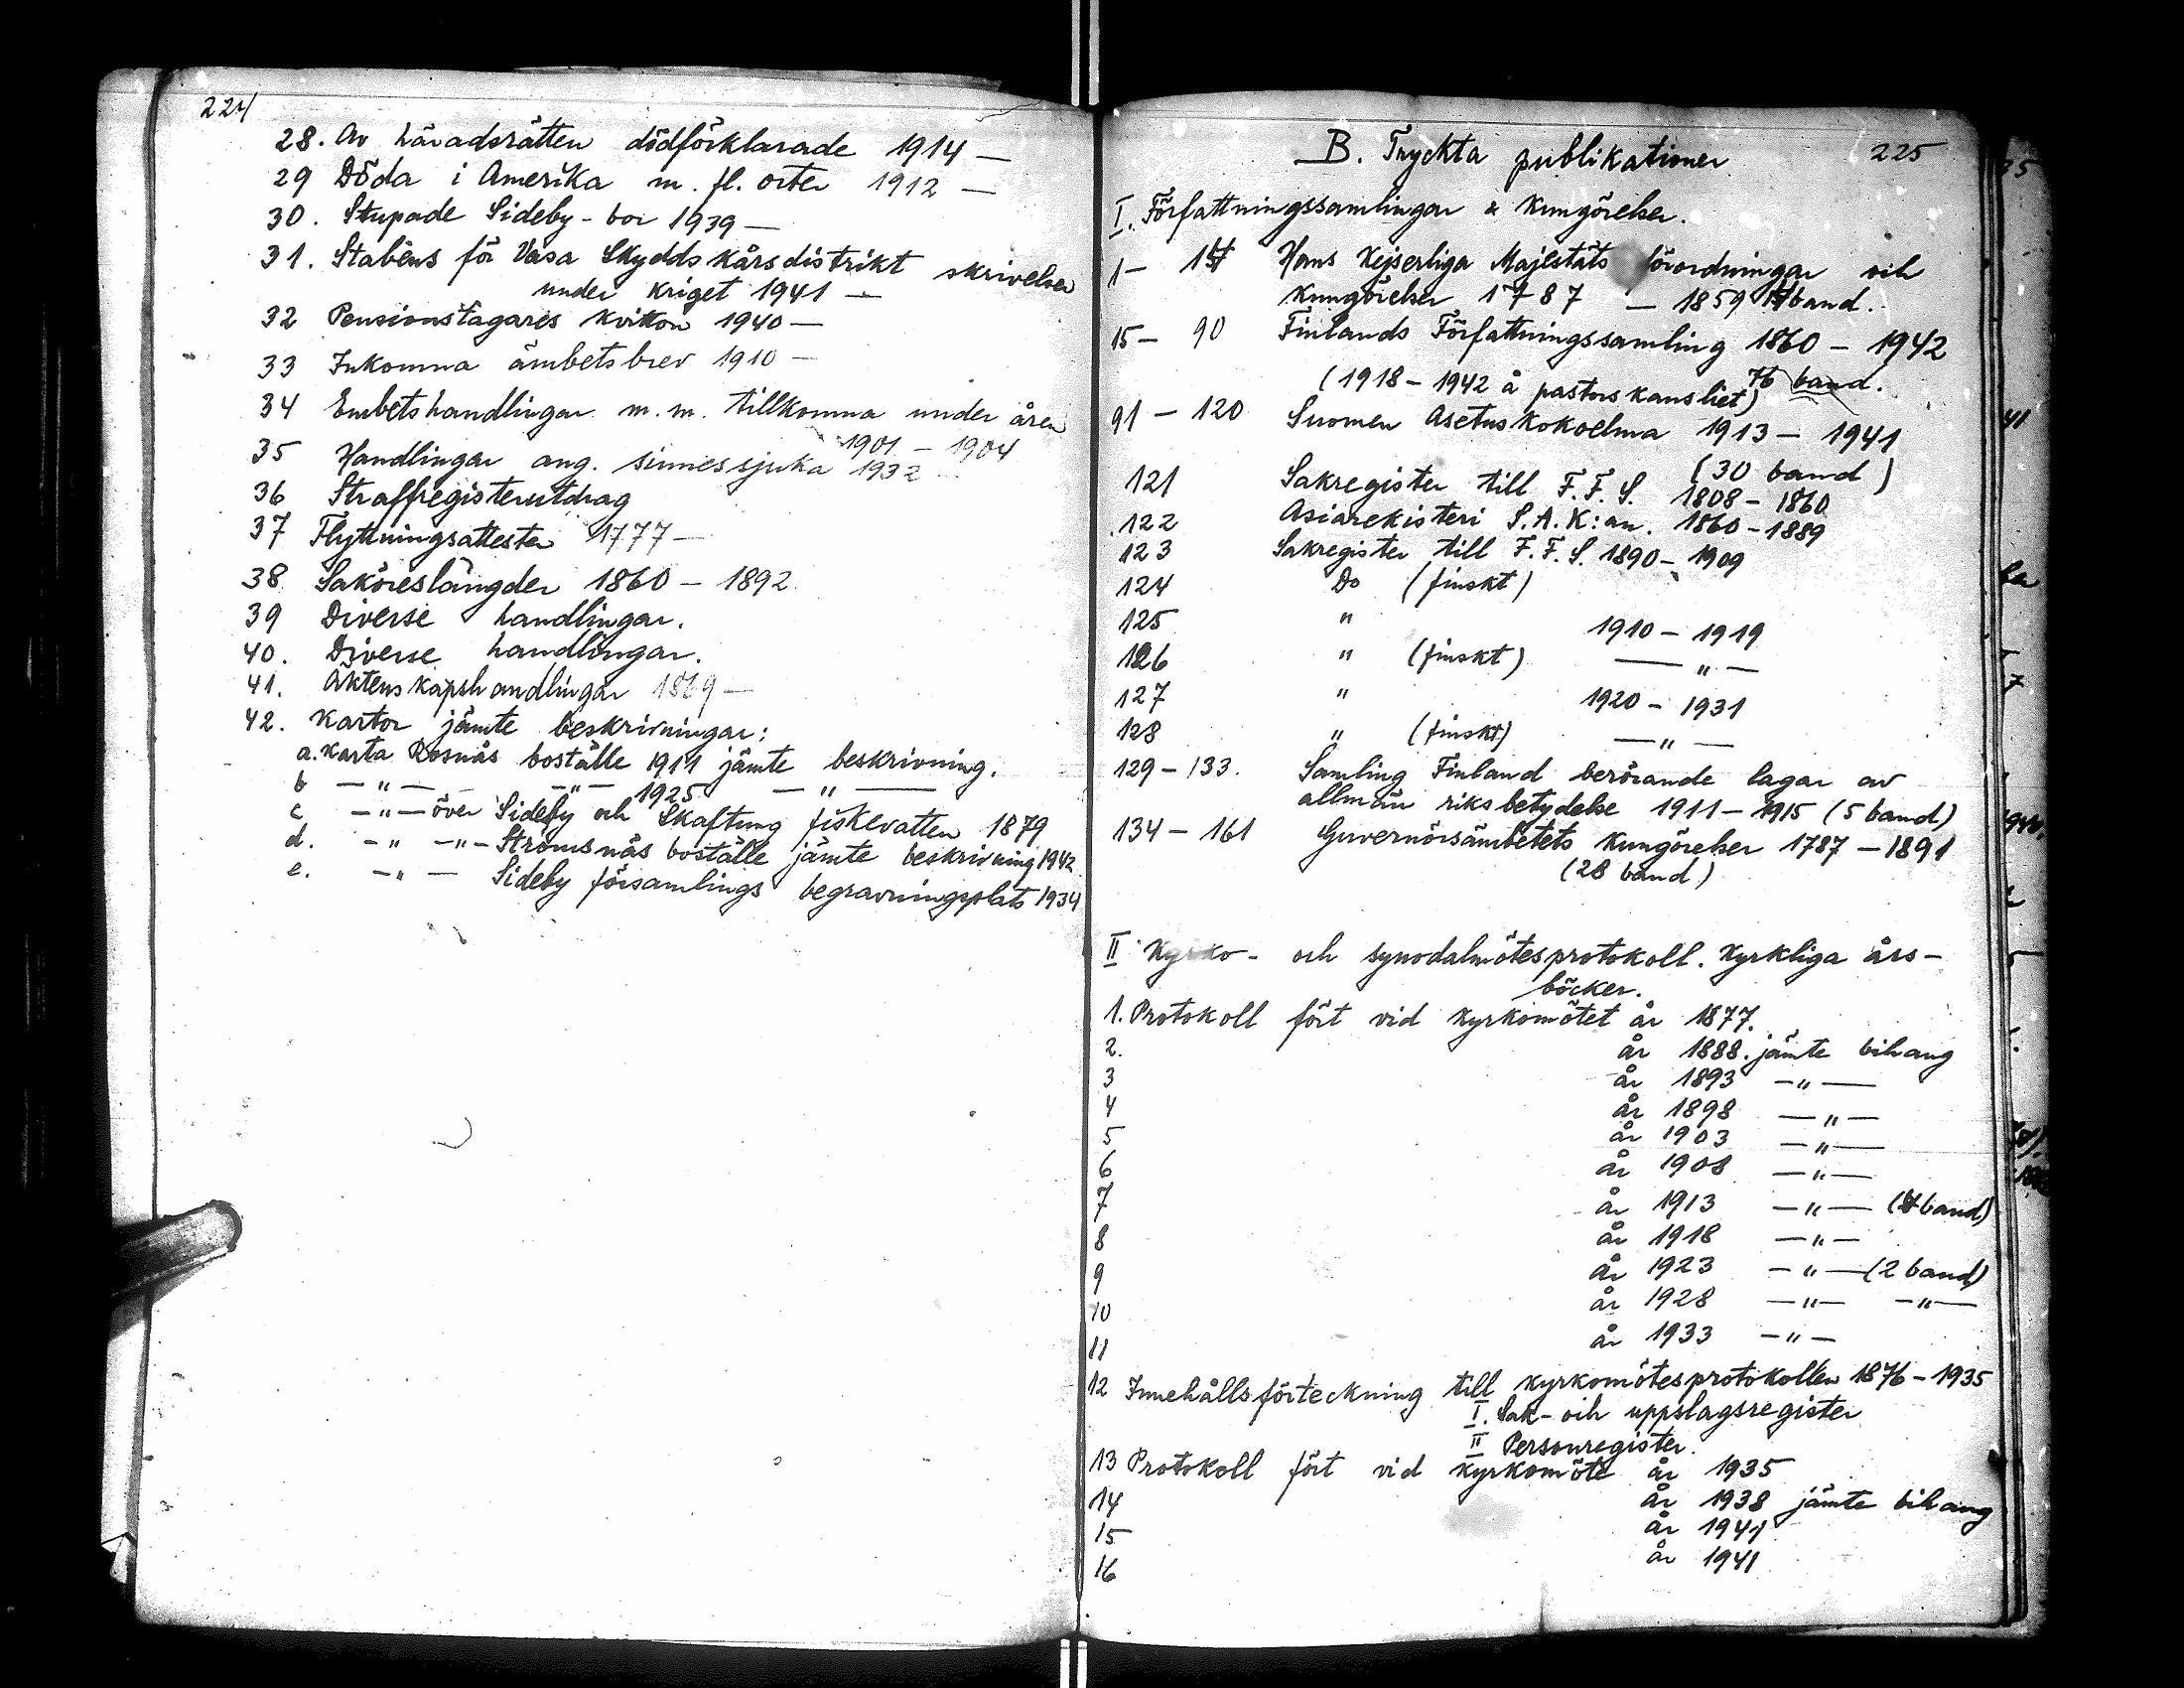 224
28. Av häradsrätten dödförklarade 1914 —
29 Döda i Amerika m. fl. orter 1912 —
30. Stupade Sideby-bor 1939 —
31. Stabens för Vasa Skyddskårsdistrikt skrivelser
under kriget 1941 —
32 Pensionstagares kvitton 1940 —
33 Inkomna ämbetsbrev 1910 —
34 Embetshandlingar m.m. tillkomna under åren
1901 – 1904
35 Handlingar ang. sinnessjuka 1932
36 Straffregisterutdrag
37 Flyttningsattester 1777 —
38 Saköreslängder 1860 – 1892
39 Diverse handlingar.
40. Diverse handlingar.
41. Äktenskapshandlingar 1869 —
42. Kartor jämte beskrivningar:
a. Karta Rosnäs boställe 1911 jämte beskrivning.
b — " — — " — 1925 — " —
c — " — över Sideby och Skaftung fiskevatten 1879
d. — " — " — Strömsnäs boställe jämte beskrivning 1942
e. — " — Sideby församlings begravningsplats 1934
225
B. Tryckta publikationer
I. Författningssamlingar & kungörelser.
1 – 14 Hans Kejserliga Majestäts förordningar och
kungörelser 1787 — 1859 14 band.
15 – 90 Finlands Författningssamling 1860 – 1942
(1918 – 1942 å pastorskansliet) 76 band.
91 – 120 Suomen Asetuskokoelma 1913 – 1941
(30 band)
121 Sakregister till F.F.S. 1808 – 1860
122 Asiarekisteri S.A.K:an. 1860 – 1889
123 Sakregister till F.F.S. 1890 – 1909
124 Do (finskt)
125 " 1910 – 1919
126 " (finskt) — " —
127 " 1920 – 1931
128 " (finskt) — " —
129 – 133. Samling Finland berörande lagar av
allmän riksbetydelse 1911 – 1915 (5 band)
134 – 161 Guvernörsämbetets kungörelser 1787 – 1891
(28 band)
II Kyrko- och synodalmötesprotokoll. Kyrkliga års-
böcker.
1. Protokoll fört vid kyrkomötet år 1877.
2. år 1888. jämte bihang
3 år 1893 — " —
4 år 1898 — " —
5 år 1903 — " —
6 år 1908 — " —
7 år 1913 — " — ( band)
8 år 1918 — " —
9 år 1923 — " — (2 band)
10 år 1928 — " — — " —
11 år 1933 — " —
12 Innehållsförteckning till kyrkomötesprotokollen 1876 – 1935
I. Sak- och uppslagsregister
II Personregister.
13 Protokoll fört vid kyrkomöte år 1935
14 år 1938 jämte bihang
15 år 1941
16 år 1941